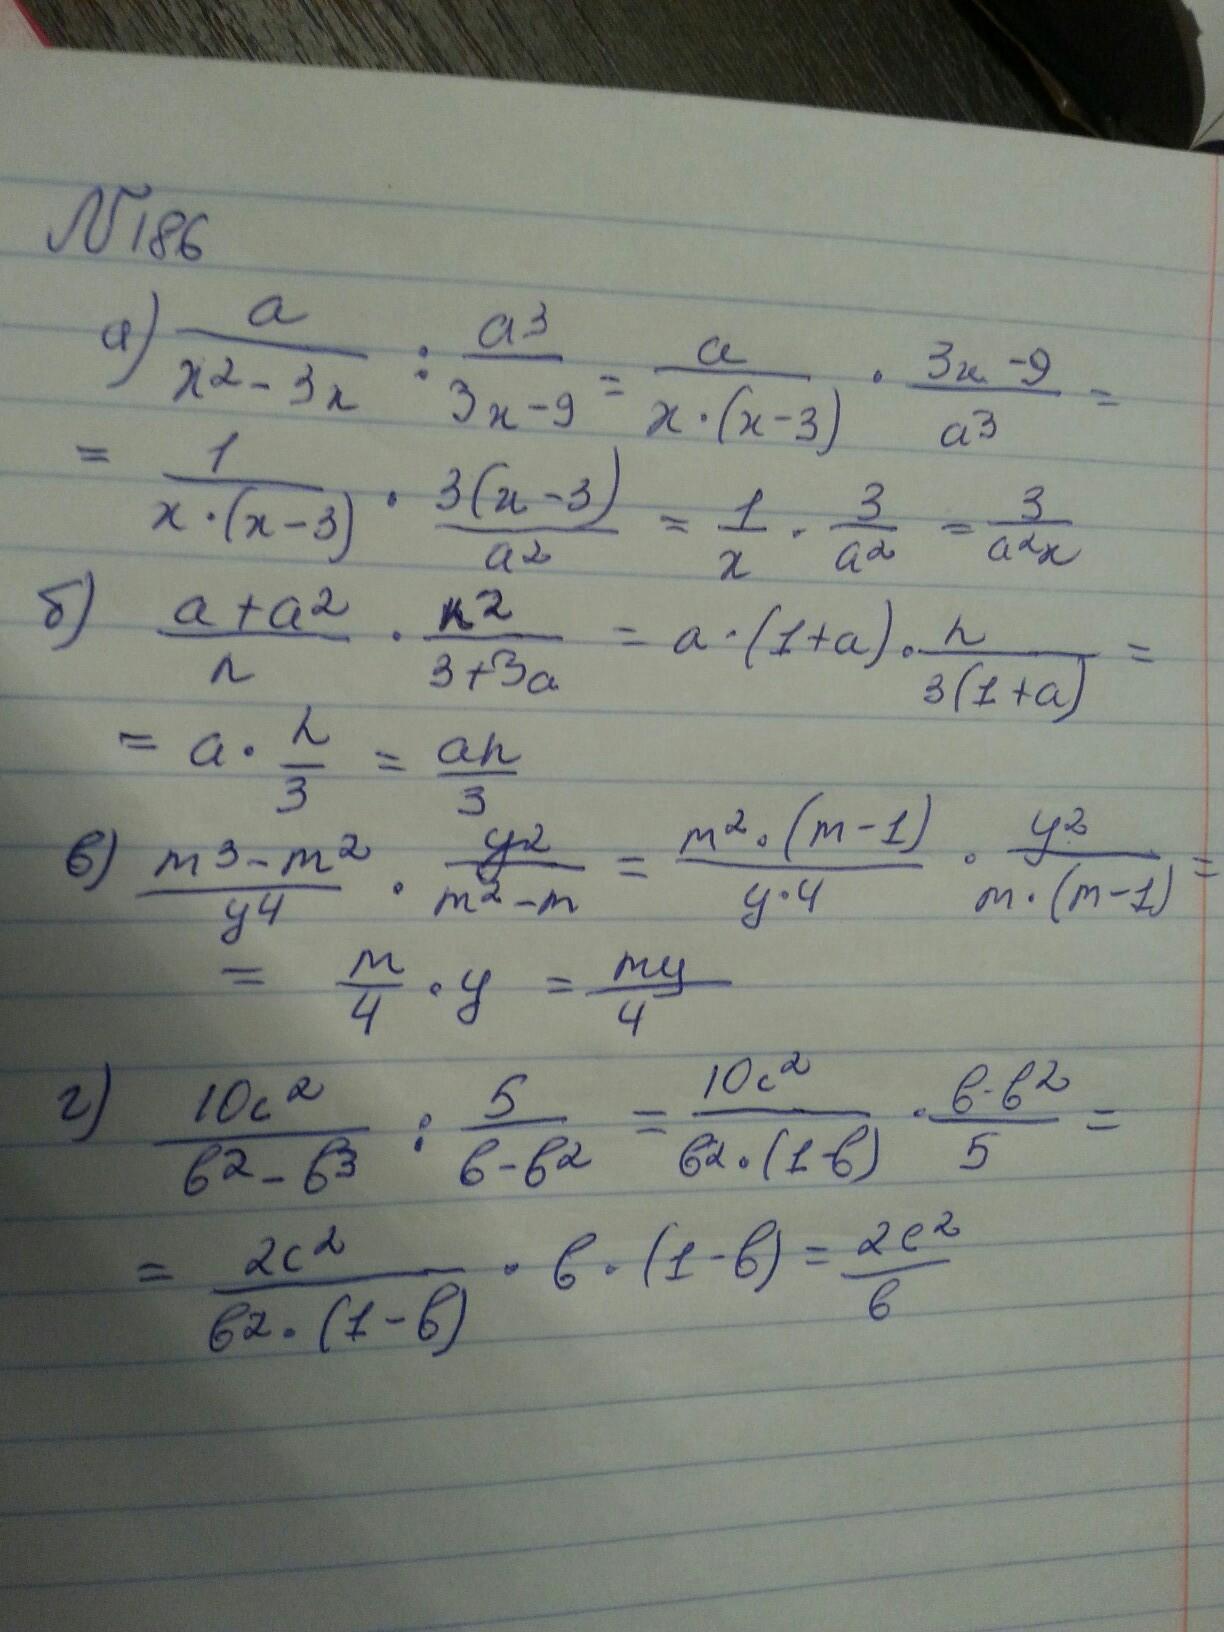 №186
а) a/(x² - 3x) : a³/(3x - 9) = a/(x · (x - 3)) · (3x - 9)/a³ =
= 1/(x · (x - 3)) · 3(x - 3)/a² = 1/x · 3/a² = 3/(a²x)
б) (a + a²)/n · n²/(3 + 3a) = a · (1 + a) · n/(3(1 + a)) =
= a · n/3 = an/3
в) (m³ - m²)/(y4) · y²/(m² - m) = (m² · (m - 1))/(y · 4) · y²/(m · (m - 1)) =
= m/4 · y = my/4
г) 10c²/(b² - b³) : 5/(b - b²) = 10c²/(b² · (1 - b)) · (b - b²)/5 =
= 2c²/(b² · (1 - b)) · b · (1 - b) = 2c²/b